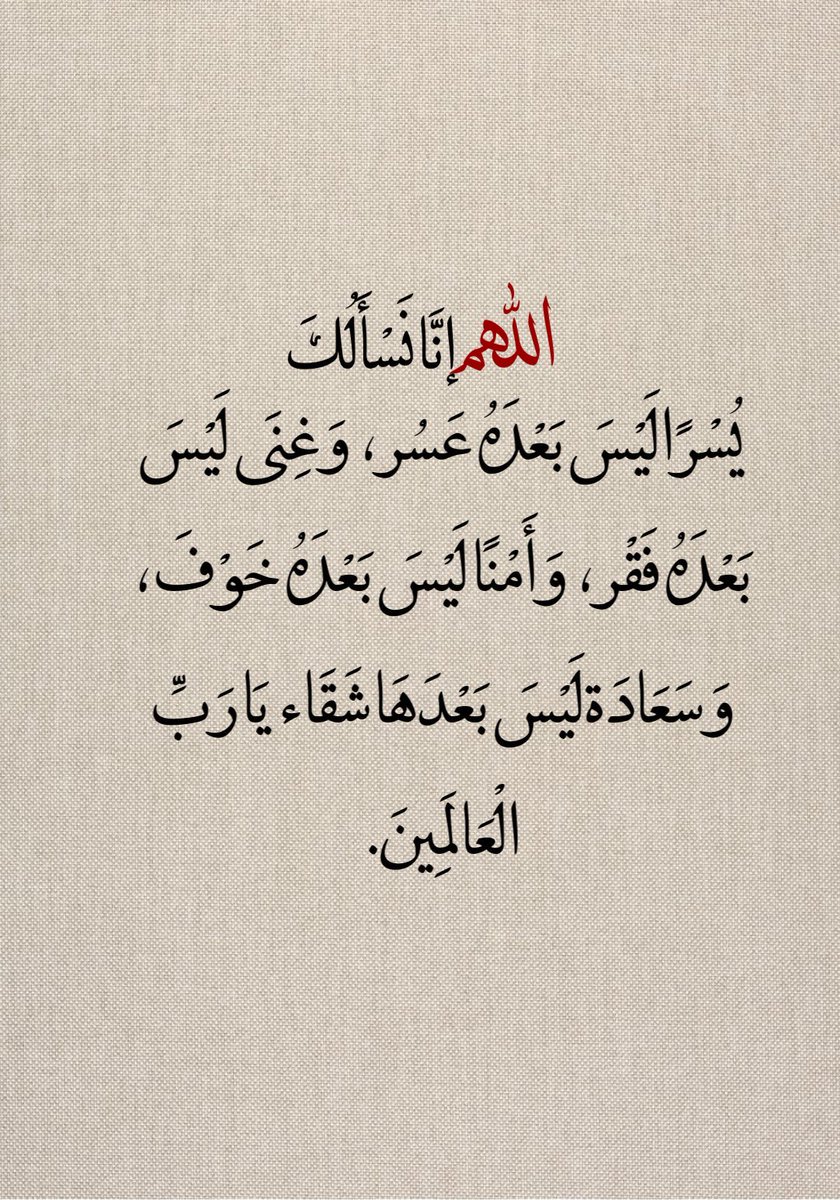 اللهم إنَّا نَسْأَلُكَ
يُسْرًا لَيْسَ بَعْدَهُ عَسُر، وَغِنَى لَيْسَ
بَعْدَهُ فَقْر، وَأَمْنًا لَيْسَ بَعْدَهُ خَوْفَ،
وَسَعَادَة لَيْسَ بَعْدَهَا شَقَاء يَا رَبِّ
الْعَالَمِينَ.